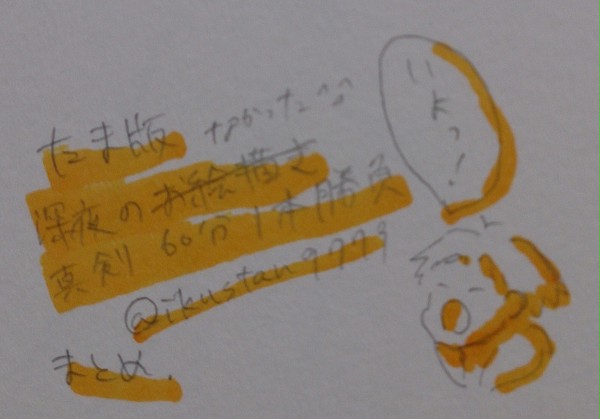 たま版 なかった^^;
深夜のお絵描き
真剣 60分1本勝負
@ikustan9779
まとめ.
いよっ!